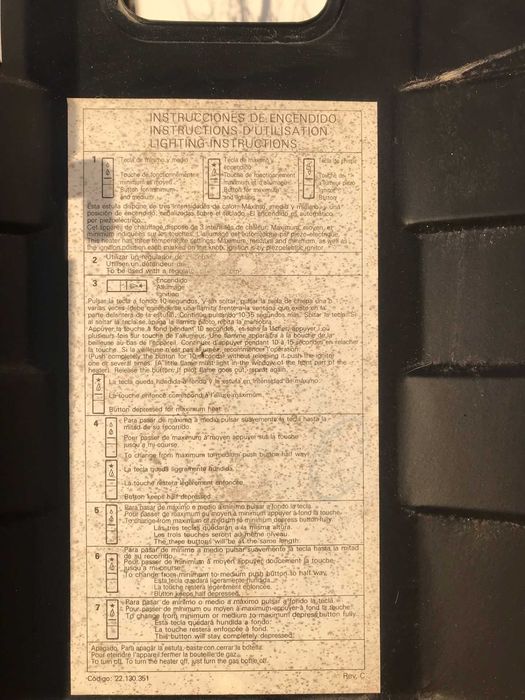 INSTRUCCIONES DE ENCENDIDO
INSTRUCTIONS D'UTILISATION
LIGHTING INSTRUCTIONS
1
Tecla de mínimo y medio
Touche de fonctionnement
minimum et moyen
Button for minimum
and medium
Tecla de máximo y
encendido
Touche de fonctionnement
maximum et d'allumage
Button for maximum
and lighting
Tecla de chispa
Touche de
Button
Esta estufa dispone de tres intensidades de calor: Máximo, medio y mínimo y una
posición de encendido, señalizadas sobre el teclado. El encendido es automático
por piezoeléctrico.
Cet appareil de chauffage dispose de 3 intensités de chaleur: Maximum, moyen, et
minimum indiquées sur les touches. L'allumage est automatique par piezo-électrique.
This heater has three temperature settings: Maximum, medium and minimum, as well as
the ignition position each marked on the knob. Ignition is by piezoelectric ignitor.
2
Utilizar un regulador de
Utiliser un détendeur de
To be used with a
3
Encendido
Allumage
Ignition
Pulsar la tecla a fondo 10 segundos, y sin soltar, pulsar la tecla de chispa una o
varias veces
Appuyer la touche à fond pendant 10 secondes, et sans la lâcher, appuyer
plusieurs fois sur touche de l'allumeur. Une flamme apparaîtra à la bouche de la
veilleuse au bas de l'appareil. Continuer d'appuyer pendant 10 à 15 secondes en relâcher
la touche. Si la veilleuse
(Push completely the button for 10 seconds without releasing it push the ignitor
one or several times. (A little flame must light in the window of the front part of the
heater). Release the button. If pilot flame goes out, repeat again.
La tecla queda hundida a fondo y la estufa en intensidad de máximo.
La touche enfoncé correspond à l'allure maximum.
Button depressed for maximum heat.
4
Para pasar de máximo a medio pulsar suavemente la tecla hasta la
mitad de su recorrido.
Pour passer de maximum à moyen appuyer sur la touche
jusqu'a mi-course.
To change from maximum to medium push button half way.
La tecla queda ligeramente hundida.
La touche restera légèrement enfoncée.
Button keeps half depressed.
5
Para pasar de máximo o medio a mínimo pulsar a fondo la tecla.
Pour passer de maximum ou moyen à minimum appuyer à fond la touche.
To change from maximum or medium to minimum depress button fully.
Las tres teclas quedarán a la misma altura.
Les trois touches seront au même niveau.
The three buttons will be at the same length.
6
Para pasar de mínimo a medio pulsar suavemente la tecla hasta la mitad
de su recorrido.
Pour passer de minimum à moyen appuyer doucement la touche,
jusqu'a mi-course.
To change from minimum to medium push button to half way.
Esta tecla quedará ligeramente hundida.
La touche restera légèrement enfoncée.
Button keeps half depressed.
7
Para pasar de mínimo o medio a máximo pulsar a fondo la tecla.
Pour passer de minimum ou moyen à maximum appuyer à fond la touche.
To change from minimum or medium to maximum depress button fully.
Esta tecla quedará hundida a fondo.
La touche restera enfoncée à fond.
This button will stay completely depressed.
Apagado. Para apagar la estufa, basta con cerrar la botella.
Pour éteindre l'appareil fermer la bouteille de gaz.
To turn off. To turn the heater off, just turn the gas bottle off.
Código: 22.130.351
Rev. C